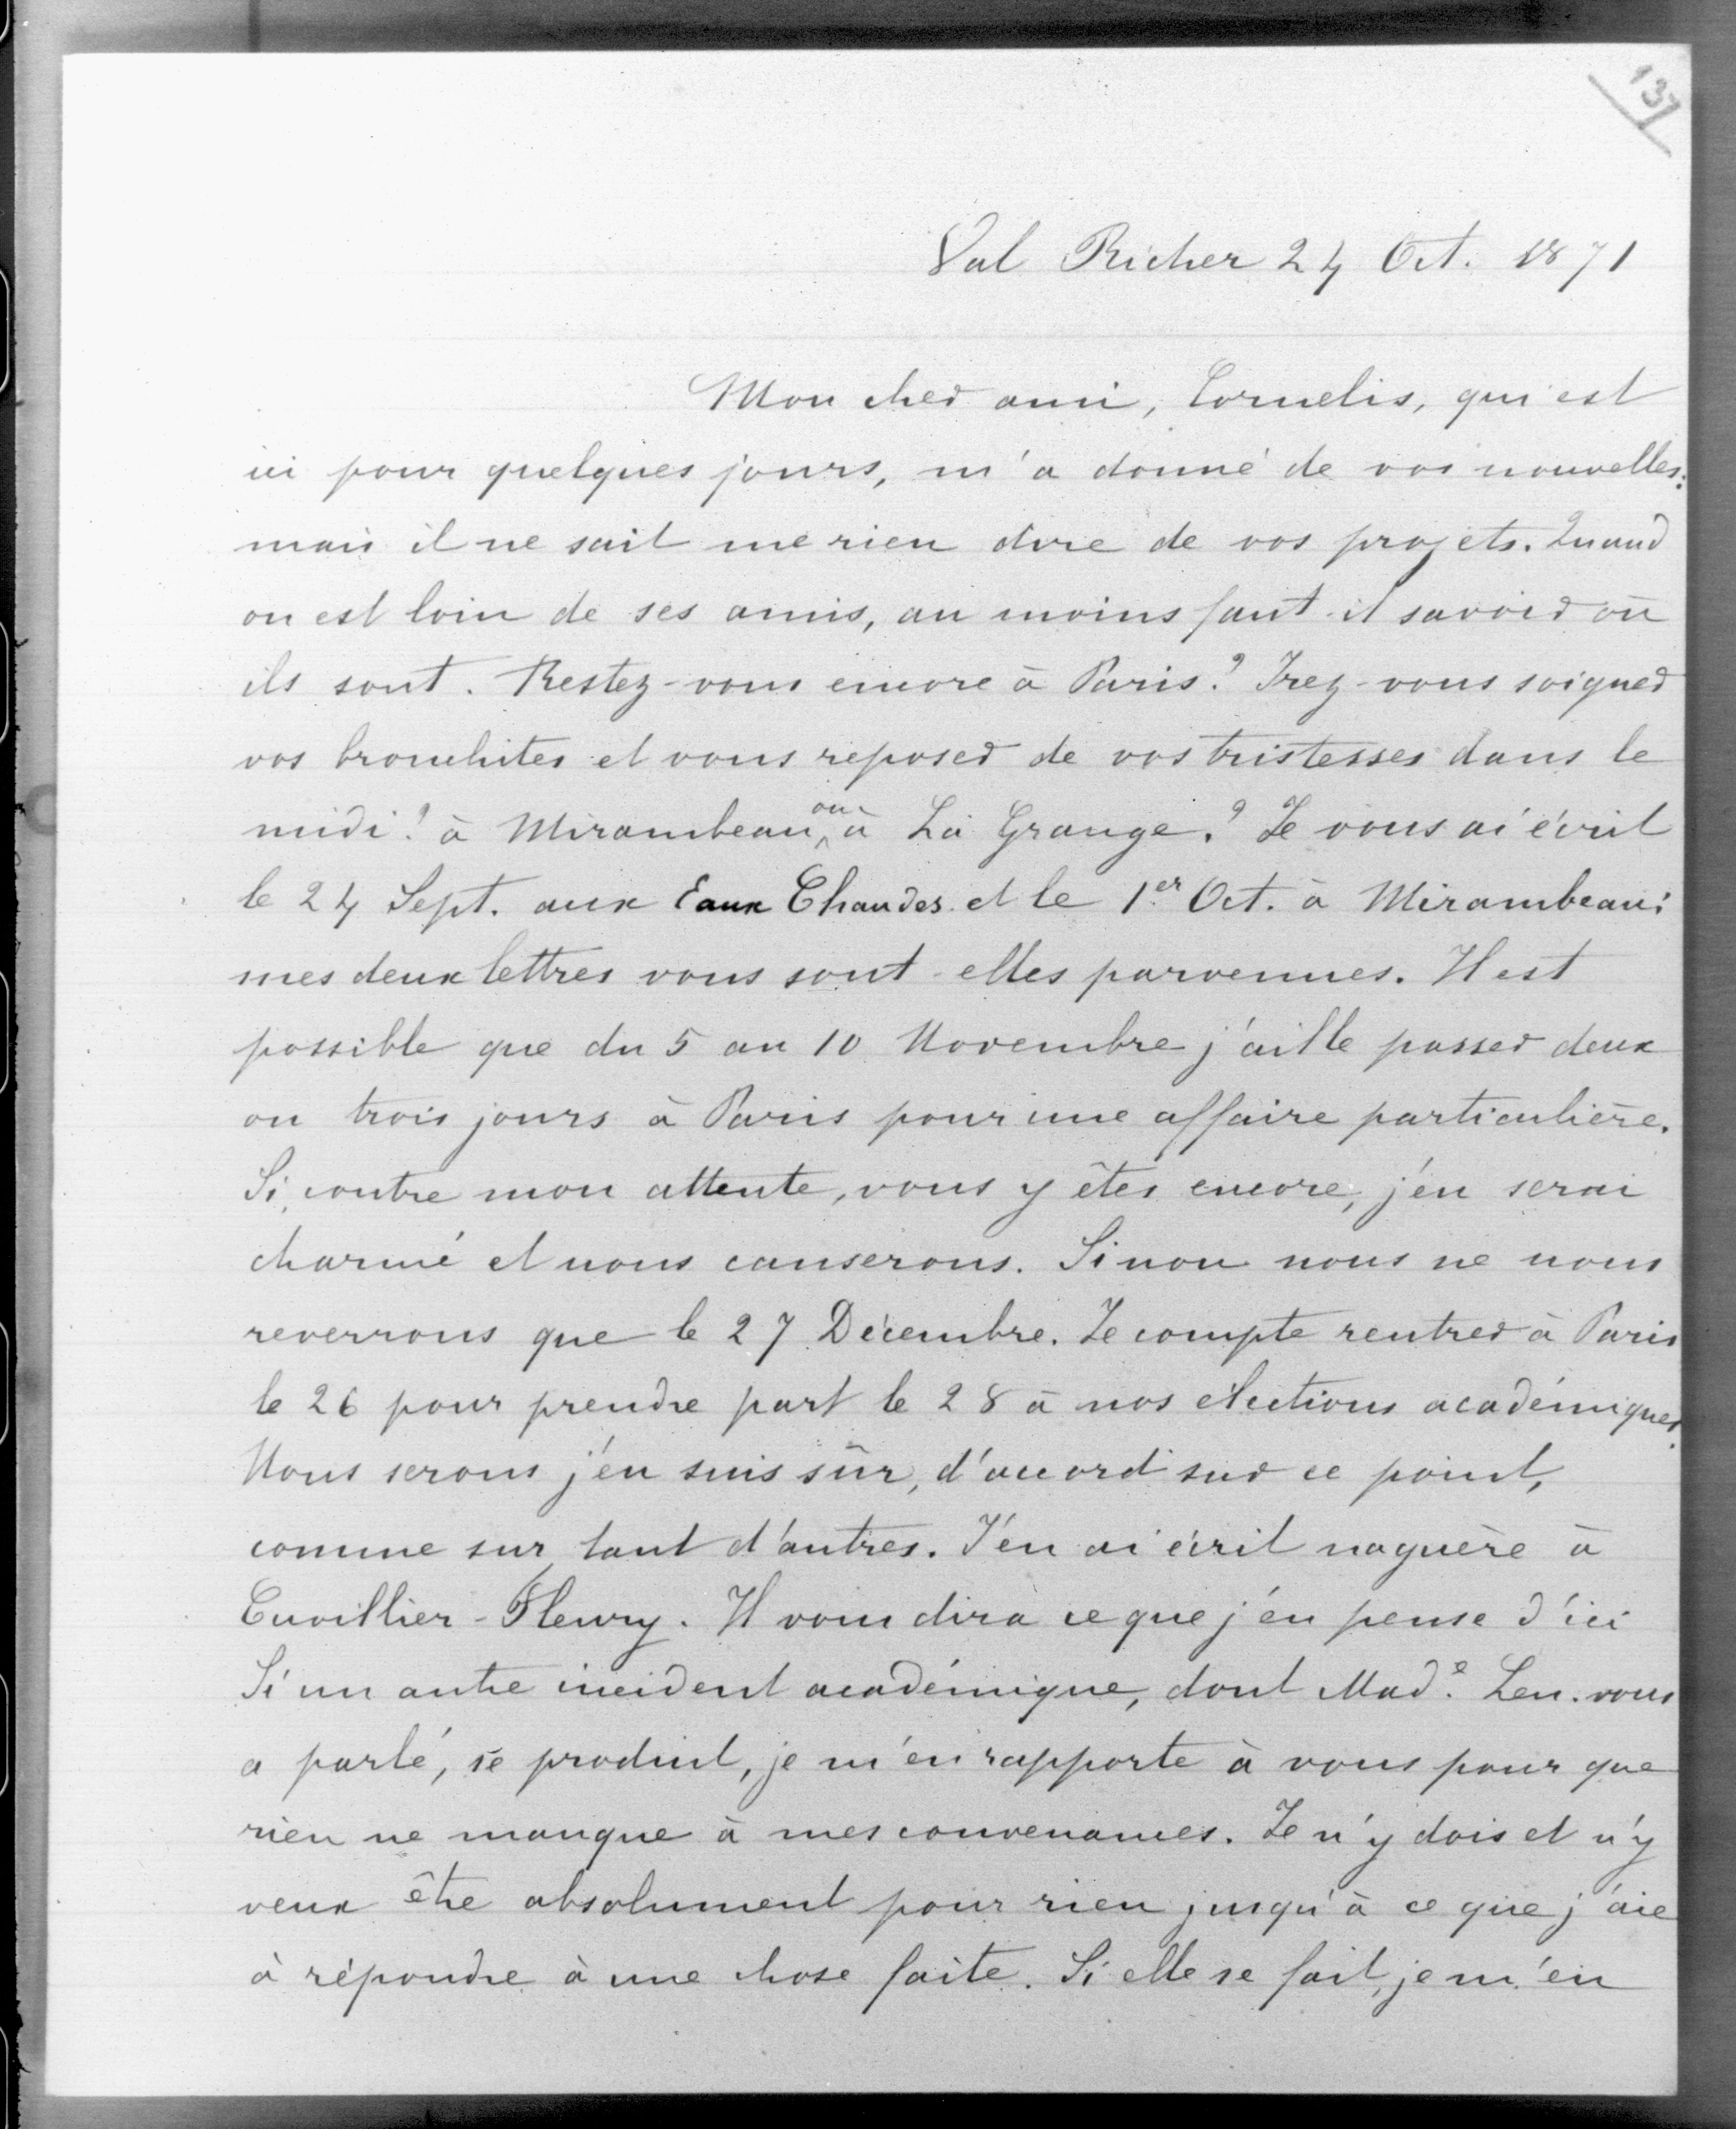 137
Val Richer 24 Oct. 1871
Mon cher ami, Cornelis, qui est
ici pour quelques jours, m'a donné de vos nouvelles:
mais il ne sait me rien dire de vos projets. Quand
on est loin de ses amis, au moins faut-il savoir où
ils sont. Restez-vous encore à Paris? Irez-vous soigner
vos bronchites et vous reposer de vos tristesses dans le
midi? à Mirambeau, ou à La Grange? Je vous ai écrit
le 24 Sept. aux Eaux Chaudes et le 1er Oct. à Mirambeau:
mes deux lettres vous sont-elles parvenues. Il est
possible que du 5 au 10 Novembre j'aille passer deux
ou trois jours à Paris pour une affaire particulière.
Si, contre mon attente, vous y êtes encore, j'en serai
charmé et nous causerons. Sinon nous ne nous
reverrons que le 27 Décembre. Je compte rentrer à Paris
le 26 pour prendre part le 28 à nos élections académiques.
Nous serons j'en suis sûr, d'accord sur ce point,
comme sur tant d'autres. J'en ai écrit naguère à
Cuvillier-Fleury. Il vous dira ce que j'en pense d'ici
Si un autre incident académique, dont Made. Len. vous
a parlé, se produit, je m'en rapporte à vous pour que
rien ne manque à mes convenances. Je n'y dois et n'y
veux être absolument pour rien jusqu'à ce que j'aie
à répondre à une chose faite. Si elle se fait, je m'en